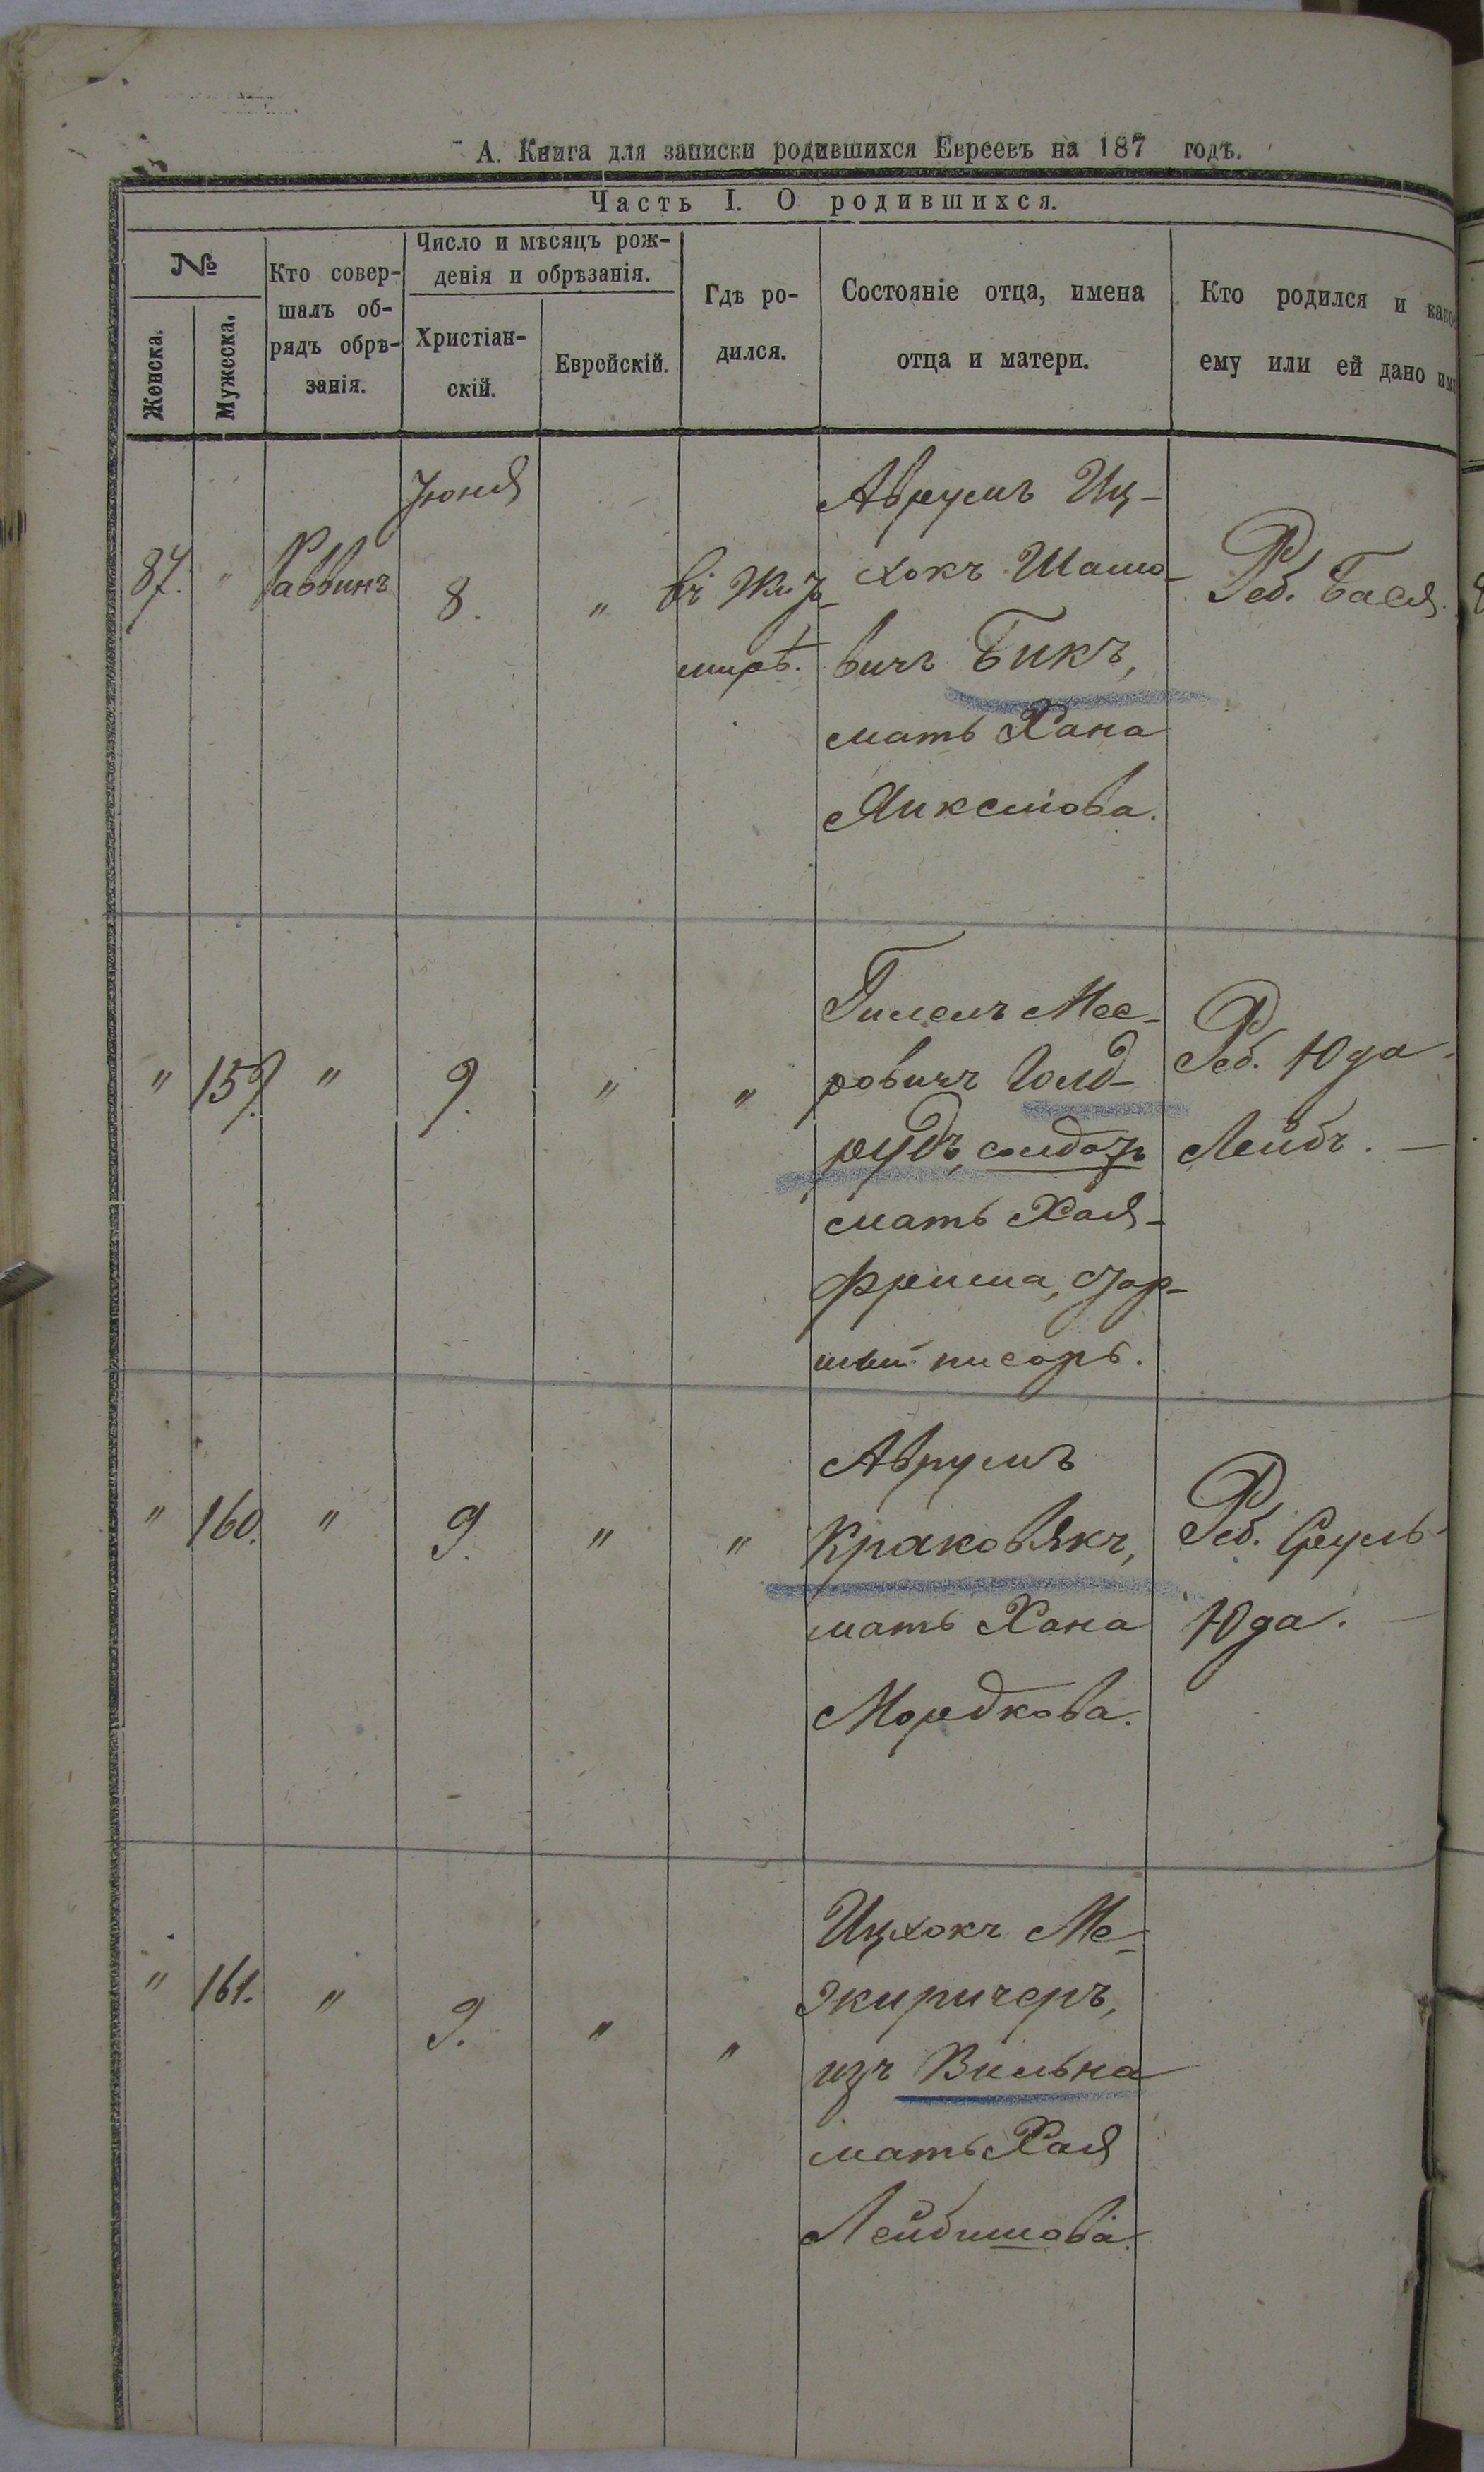 А. Книга для записки родившихся Евреевъ на 187 годѣ.
Часть I. О родившихся.
№
Женска.
Мужеска.
Кто совер-
шалъ об-
рядъ обрѣ-
занія.
Число и мѣсяцъ рож-
денія и обрѣзанія.
Христіан-
скій.
Еврейскій.
Гдѣ ро-
дился.
Состояніе отца, имена
отца и матери.
Кто родился и
ему или ей дано
87. " Раввинъ
Іюня
8. "
въ Жит-
мирѣ.
Аврумъ Иц-
хокъ Шашо-
вичъ Бикъ,
мать Хана
Реб. Бася.
" 159. " 9. " "
Гилелъ Мее-
ровичъ Голд-
рудъ, солдатъ
мать Хая-
Фрима, стар-
шій писарь.
Реб. Юда
Лейбъ. —
" 160. " 9. " "
Аврумъ
Краковякъ,
мать Хана
Мордкова.
Реб. Сруль
Юда. —
" 161. " 9. " "
Ицхокъ Ме-
жиричеръ,
изъ Вильна
мать Хая
Лейбишова.